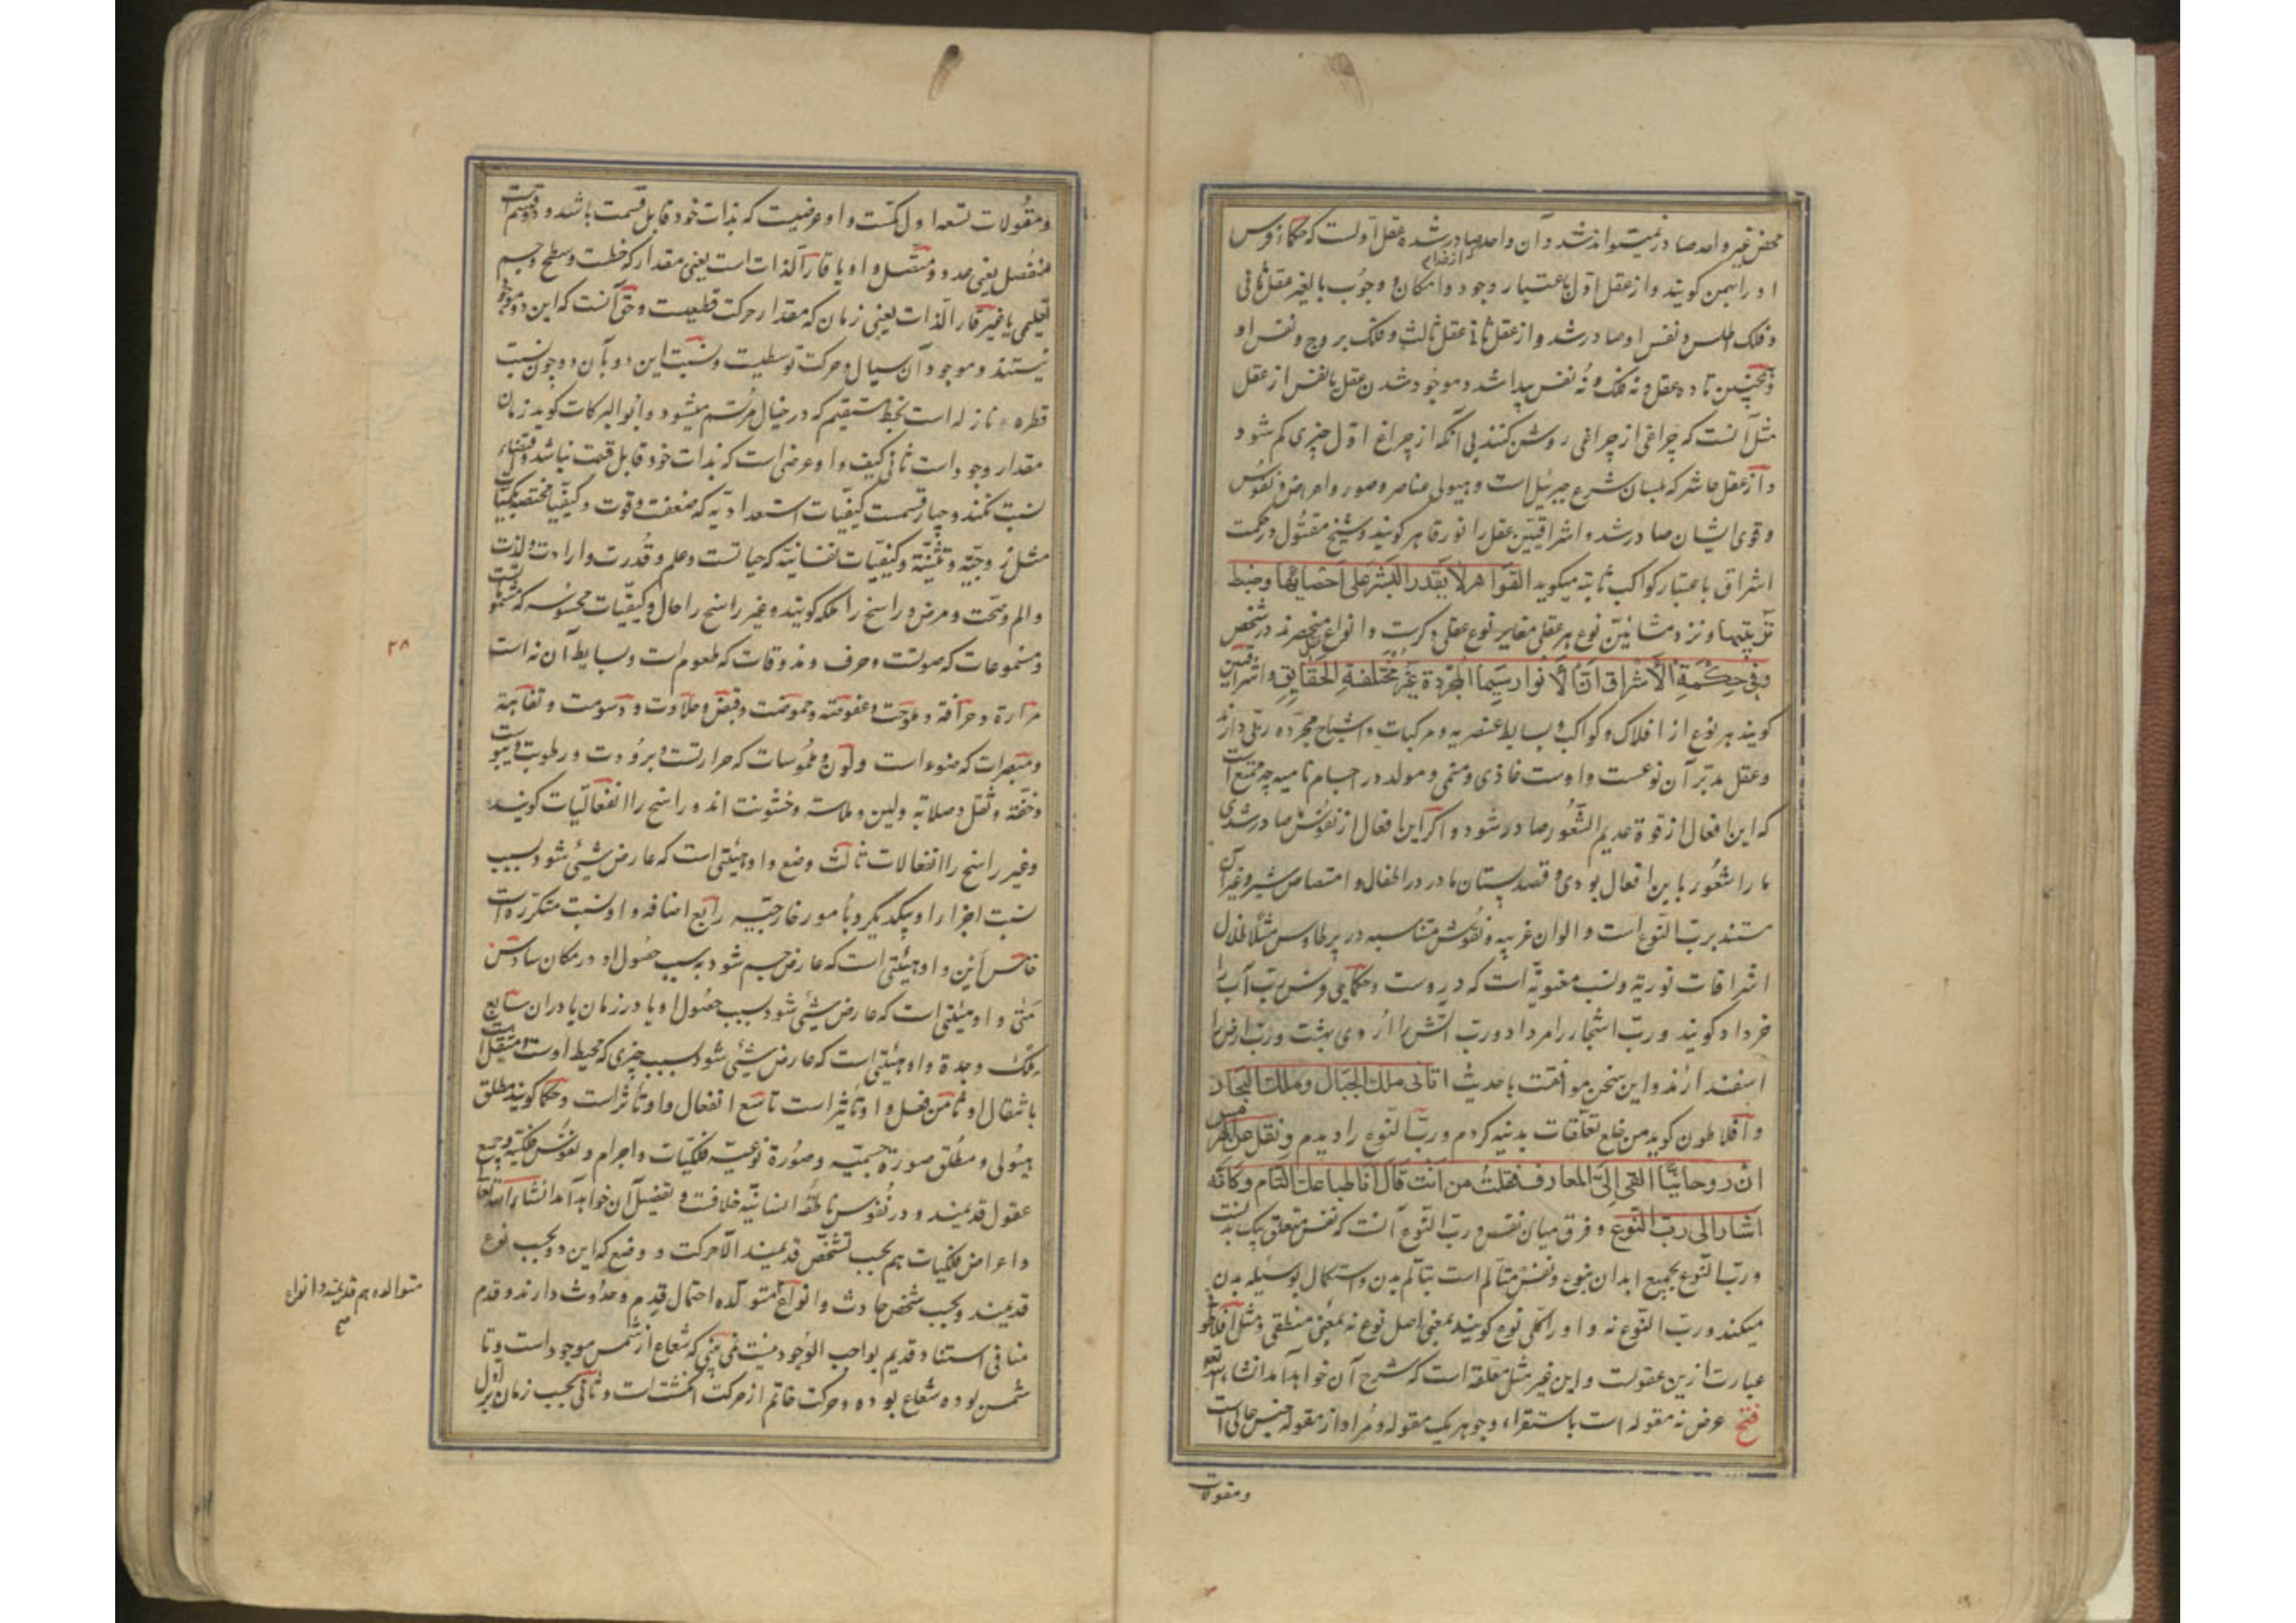 محض غیر واحد صادر نمیتواند شد و آن واحد صادر شده عقل اولست که حکماء فرس
او را بهمن گویند و از عقل اول باعتبار وجود و امکان و وجوب بالغیر عقل ثانی
و فلک اطلس و نفس او صادر شد و از عقل ثانی عقل ثالث و فلک بروج و نفس او
و همچنین تا ده عقل و نه فلک و نه نفس پیدا شد و موجود شدن عقل یا نفس از عقل
مثل آنست که چراغی از چراغی روشن کنند بی آنکه از چراغ اول چیزی کم شود
و از عقل عاشر که بلسان شرع جبرئیل است و هیولی عناصر و صور و اعراض و نفوس
و قوی ایشان صادر شد و اشراقیین عقل را نور قاهر گویند و شیخ مقتول در حکمت
اشراق باعتبار کواکب ثابته میگوید القواهر لا یقدر البشر علی احصائها و ضبط
ترتیبها و نزد مشائین نوع هر عقلی مغایر نوع عقلی دگرست و انواع منحصرند در شخص
و فی حکمة الاشراق ان الانوار سیما المجردة غیر مختلفة الحقایق و اشراقیین
گویند هر نوع از افلاک و کواکب و بسایط عنصریه و مرکبات و اشباح مجرده ربی دارند
و عقل مدبر آن نوعست و اوست غاذی و منمی و مولد در اجسام نامیه چه ممتنع است
که این افعال از قوة عدیم الشعور صادر شود و اگر این افعال از نفوس ما صادر شدی
ما را شعور باین افعال بودی و قصد پستان مادر در اطفال و امتصاص شیر و غیر آن
مستند برب النوع است و الوان غریبه و نقوش متناسبه در پر طاوس مثلا ظلال
اشراقات نوریه و نسب معنویه است که در وست و حکمای فرس رب آب را
خرداد گویند و رب اشجار را مرداد و رب آتش را اردی بهشت و رب ارض را
اسفندارند و این سخن موافقت با حدیث اتانی ملک الجبال و ملک البحار
و افلاطون گوید من خلع تعلقات بدنیه کردم و رب النوع را دیدم و نقل عن هرمس
ان روحانیا القی الی المعارف فقلت من انت قال انا طباعک التام و کانه
اشار الی رب النوع و فرق میان نفس و رب النوع آنست که نفس متعلق بیک بدنست
و رب النوع بجمیع ابدان نوع و نفس متألم است بتألم بدن و استکمال بوسیله بدن
میکند و رب النوع نه و او را کلی نوع گویند بمعنی اصل نوع نه بمعنی منطقی و مثل افلاطون
عبارت ازین عقولست و این غیر مثل معلقه است که شرح آن خواهد آمد انشاء الله تعالی
فتح عرض نه مقوله است باستقراء و جوهر یک مقوله و مراد از مقوله جنس عالی است
و مقولات
و مقولات تسعه اول کمست و او عرضیست که بذات خود قابل قسمت باشد و دو قسم است
منفصل یعنی عدد و متصل و او یا قار الذات است یعنی مقدار که خطست و سطح و جسم
تعلیمی یا غیر قار الذات یعنی زمان که مقدار حرکت قطعیست و حق آنست که این دو موجود
نیستند و موجود آن سیال و حرکت توسطیست و نسبت این دو بآن دو چون نسبت
قطره نازله است بخط مستقیم که در خیال مرتسم میشود و ابوالبرکات گوید زمان
مقدار وجود است ثانی کیف و او عرضی است که بذات خود قابل قسمت نباشد و اقتضاء
نسبت نکند و چهار قسمست کیفیات استعدادیه که ضعفت و قوت و کیفیات مختصه بکمیات
مثل زوجیه و تثنیه و کیفیات نفسانیه که حیاتست و علم و قدرت و ارادت و لذت
و الم و صحت و مرض و راسخ را ملکه گویند و غیر راسخ را حال و کیفیات محسوسه که مشموماتست
و مسموعات که صوتست و حرف و مذوقات که طعوم است و بسایط آن نه است
مرارة و حرافة و ملوحت و عفوصته و حموضت و قبض و حلاوت و دسومت و تفاهة
و مبصرات که ضوء است و لون و ملموسات که حرارتست و برودت و رطوبت و یبوست
و خفته و ثقل و صلابه و لین و ملاسته و خشونت اند و راسخ را انفعالیات گویند
و غیر راسخ را انفعالات ثالث وضع و او هیئتی است که عارض شیئی شود بسبب
نسبت اجزاء او بیکدیگر و بامور خارجیه رابع اضافه و او نسبت متکرره است
خامس این و او هیئتی است که عارض جسم شود بسبب حصول او در مکان سادس
متی و او هیئتی است که عارض شیئی شود بسبب حصول او یا در زمان یا در آن سابع
ملک و جدة و او هیئتی است که عارض شیئی شود بسبب چیزی که محیط اوست و منتقل است
بانتقال او ثامن فعل و او تأثیر است تاسع انفعال و او تأثر است و حکما گویند مطلق
هیولی و مطلق صورة جسمیه و صورة نوعیه فلکیات و اجرام و نفوس فلکیه و جمیع
عقول قدیمند و در نفوس ناطقه انسانیه خلافست و تفصیل آن خواهد آمد انشاء الله تعالی
و اعراض فلکیات هم بحسب تشخص قدیمند الا حرکت و وضع که این دو بحسب نوع
قدیمند و بحسب شخص حادث و انواع متوالده احتمال قدم و حدوث دارند و قدم
منافی استناد قدیم بواجب الوجود نیست نمی بینی که شعاع از شمس موجود است و تا
شمس بوده شعاع بوده و حرکت خاتم از حرکت انگشت است و ثانی بحسب زمان بر اول
متوالده هم قدیمند و انواع
۲۸